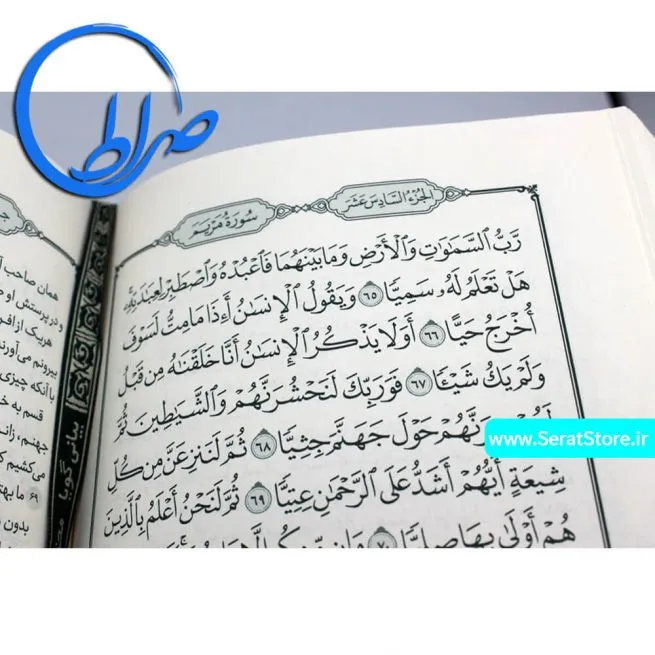 صراط
الجزء السادس عشر
سورة مريم
رَّبُّ ٱلسَّمَٰوَٰتِ وَٱلْأَرْضِ وَمَا بَيْنَهُمَا فَٱعْبُدْهُ وَٱصْطَبِرْ لِعِبَٰدَتِهِۦ
هَلْ تَعْلَمُ لَهُۥ سَمِيًّا ٦٥ وَيَقُولُ ٱلْإِنسَٰنُ أَءِذَا مَا مِتُّ لَسَوْفَ
أُخْرَجُ حَيًّا ٦٦ أَوَلَا يَذْكُرُ ٱلْإِنسَٰنُ أَنَّا خَلَقْنَٰهُ مِن قَبْلُ
وَلَمْ يَكُ شَيْـًٔا ٦٧ فَوَرَبِّكَ لَنَحْشُرَنَّهُمْ وَٱلشَّيَٰطِينَ ثُمَّ
لَنُحْضِرَنَّهُمْ حَوْلَ جَهَنَّمَ جِثِيًّا ٦٨ ثُمَّ لَنَنزِعَنَّ مِن كُلِّ
شِيعَةٍ أَيُّهُمْ أَشَدُّ عَلَى ٱلرَّحْمَٰنِ عِتِيًّا ٦٩ ثُمَّ لَنَحْنُ أَعْلَمُ بِٱلَّذِينَ
هُمْ أَوْلَىٰ بِهَا صِلِيًّا ٧٠
www.SeratStore.ir
همان صاحب
و در پرستش او
هر یک از
بیرونم می‌آورند
با آنکه چیزی
قسم به
جهنم، زانو
می‌کشیم
۶۹ ما
بدون
بیانی گویا